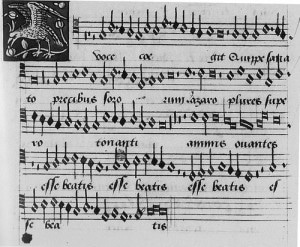 voce coe git Quippe salta
to precibus soro rum Lazaro plures supe
ro tonanti animis ovantes
esse beatis esse beatis esse beatis es
se bea tis